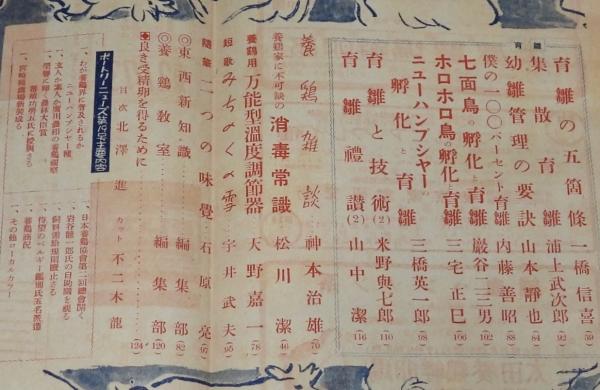 育雛
育雛の五箇條 一橋信喜 (59)
集散育雛 浦上武次郎 (84)
幼雛管理の要訣 山本靜也 (92)
僕の一〇〇パーセント育雛 內藤善昭 (88)
七面鳥の孵化と育雛 巖谷二三男 (102)
ホロホロ鳥の孵化と育雛 三宅正巳 (106)
ニューハンプシャーの孵化と育雛 三橋英一郎 (98)
育雛と技術(2) 米野與七郎 (110)
育雛禮讃(2) 山中潔 (116)
養鷄雜談 神本治雄 (70)
養鷄家に不可缺の 消毒常識 松川潔 (46)
養鷄用 万能型溫度調節器 天野嘉一 (78)
短歌 みちのくの雪 宇井武夫 (95)
隨筆 一つの味覺 石原亮 (97)
◎東西新知識 編集部 (82)
◎養鷄教室 編集部 (120)
◆良き受精卵を得るために (124)
目次 北澤進 カット 不二木龍
一、わが養鷄界に普及されるか
ニューハンプシャー種
一、その他ローカルカラー